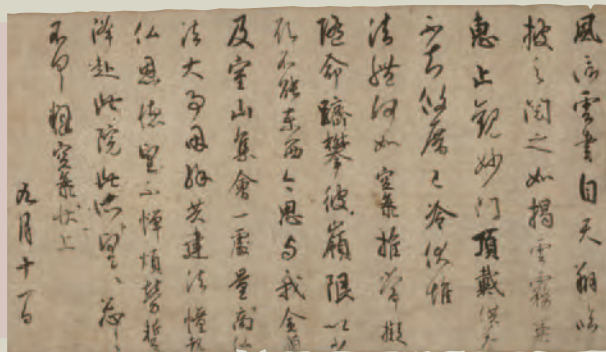 風信雲書自天翔臨
披之閲之如揭雲霧兼
恵止觀妙門頂戴供養
不知攸厝已冷伏惟
法體何如空海推常擬
隨命躋攀彼嶺限以少
願不能東西今思与我金蘭
及室山集會一處量商仏
法大事因縁共建法幢報
仏恩徳望不憚煩勞蹔
降赴此院此所望々忩々
不具釋空海状上
九月十一日